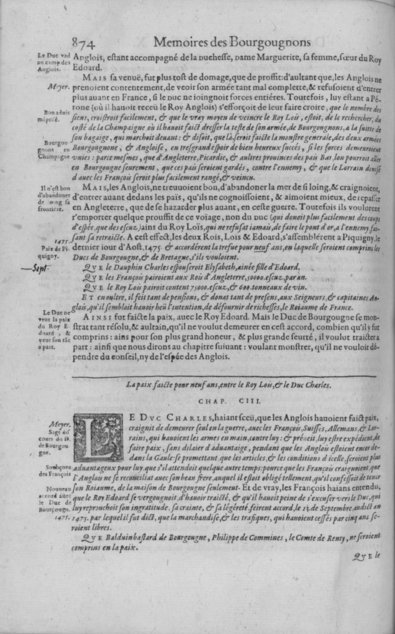 874 Memoires des Bourgougnons
Anglois, estant accompagné de la Duchesse, Dame Marguerite, sa femme, sœur du Roy
Edoard.
MAIS sa venuë, fut plus tost de domage, que de proffit: d'aultant que, les Anglois ne
prenoient contentement, de veoir son armée tant mal complette, & refusoient d'entrer
plus auant en France, si le Duc ne ioingnoit forces entiéres. Toutefois, luy estant à Pé-
rone (où il hanoit receu le Roy Anglois) s'efforçoit de leur faire croire, que le nombre des
siens, croistroit facilement, & que le vray moyen de veincre le Roy Loïs, estoit, de le rechercher, du
costé de la Champaigne
son bagaige, qui marchoit deuant: & disoit, que là, seroit faicte la monstre generale, des deux armées
Bourgougnonne, & Angloise, en tresgrand espoir de bien heureux succés, si les forces demeuroient
vnies: parce mesmes, que d'Angleterre, Picardie, & autres prouinces des païs Bas, lon pourroit aller
en Bourgougne seurement,
d'auec les François seroit plus facilement rangé, & veincu.
MAIS, les Anglois, ne treuuoient bon, d'abandonner la mer de si loing, & craignoient,
d'entrer auant dedans les païs, qu'ils ne cognoissoient, & aimoient mieux, de repasser
en Angleterre, que de se hazarder plus auant, en ceste guerre. Toutefois ils voulurent
r'emporter quelque prouffit de ce voiage, non du Duc (qui donoit plus facilement des coups
d'espée, que des escuz) ains du Roy Loïs, qui ne refusa iamais, de faire le pont d'or, à l'ennemy fai-
sant sa retraitte. A cest effect, les deux Rois, Loïs & Edoard, s'assemblérent à Piquigny, le
dernier iour d'Aost. 1475. & accordérent la trefue pour neuf ans, en laquelle seroient comprins les
Ducs de Bourgougne, & de Bretagne, s'ils vouloient.
QVE le Dauphin Charles espouseroit Elysabeth, ainée fille d'Edoard.
QVE les François paieroient aux Roix d'Angleterre, 50000. escuz. par an.
QVE le Roy Loïs paieroit content 75000. escuz, & 600. tonneaux de vin.
ET en oultre, il feit tant de pensions, & donat tant de presens, aux Seigneurs, & capitaines An-
glois, qu'il sembloit hauoir heu l'intention, de desfournir de richesses, le Roiaume de France.
AINSI fut faicte la paix, auec le Roy Edoard. Mais le Duc de Bourgougne se mo-
strat tant résolu, & aultain, qu'il ne voulut demeurer en cest accord, combien qu'il y fut
comprins: ains pour son plus grand honeur, & plus grande seurté, il voulut traicter à
part: ainsi que nous dirons au chapitre suiuant: voulant monstrer, qu'il ne vouloit dé-
pendre du conseil, ny de l'espée des Anglois.
La paix faicte pour neuf ans, entre le Roy Loïs, & le Duc Charles.
CHAP. CIII.
LE DVC CHARLES, haiant sceu, que les Anglois hauoient faict paix,
craignit de demeurer seul en la guerre, auec les François, Suisses, Allemans, & Lor-
rains, qui hauoient les armes en main, contre luy: & préuoiant, luy estre expédient, de
faire paix, sans dilaier d'aduantage, pendant que les Anglois estoient encor de-
dans la Gaule: se promettant que les articles, & les conditions d'icelle, seroient plus
aduantageux pour luy, que s'il attendoit quelque autre temps: pource que les François craignoient que
l'Anglois ne se reconciliat auec son beau frére,
son Roiaume, de la maison de Bourgougne seulement. Et de vray, les François haians entendu,
que le Roy Edoard se vergougnoit, d'hauoir traicté, & qu'il hauoit peine de s'excuser vers le Duc, qui
luy reprochoit son ingratitude, sa crainte, & sa légéreté feirent accord, le 13. de Septembre, audict an
1475. par lequel il fut dict, que la marchandise, & les trafiques, qui hauoient cessés par cinq ans se-
roient libres.
QVE Balduin bastard de Bourgougne, Philippe de Commines, le Comte de Rensy, ne seroient
comprins en la paix.
QVE le
Le Duc vad
au camp des
Anglois.
Meyer.
Bon aduis
mesprisé.
Bourgou-
gnons en
Champaigne
Il n'est bon
d'abandoner
de loing sa
frontiere.
1475.
Paix de Pi-
quigny.
Sept
Le Duc ne
veut la paix
du Roy E-
doard, &
veut son cas
à part.
Meyer.
Sage dis-
cours du Duc
de Bourgou-
gne.
Soubçons
des François
Nouueau
accord auec
le Duc de
Bourgougne.
1475.